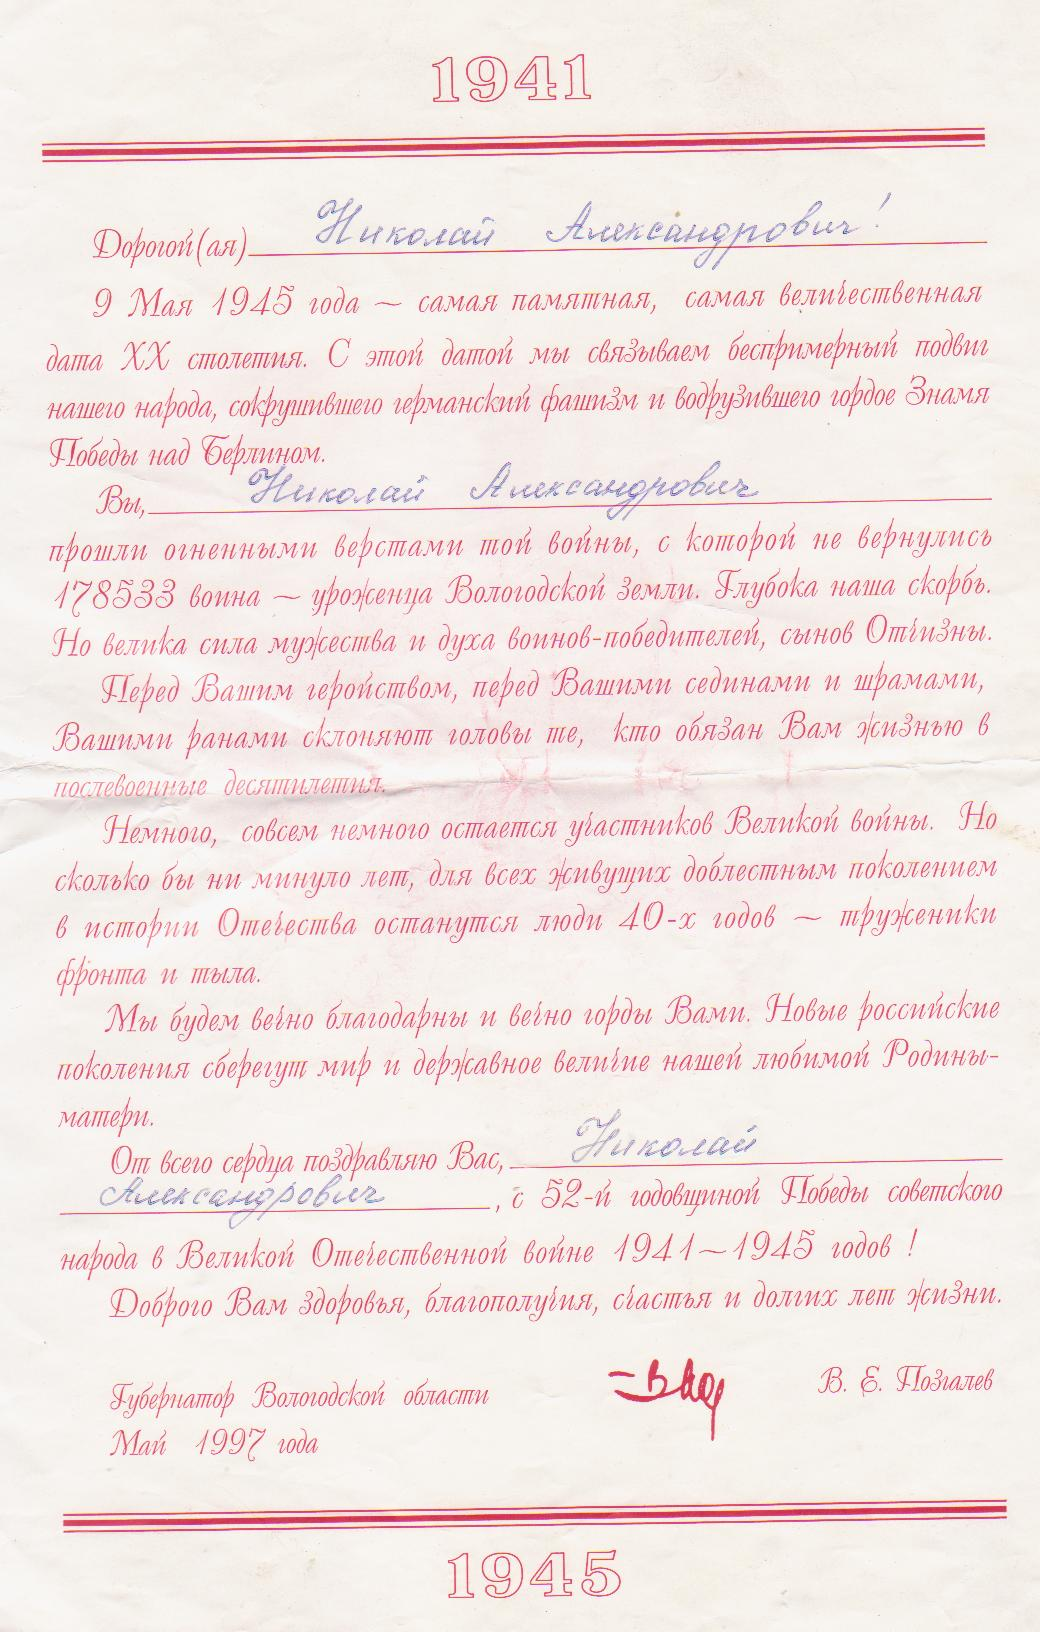 1941
Дорогой(ая) Николай Александрович!
9 Мая 1945 года – самая памятная, самая величественная
дата XX столетия. С этой датой мы связываем беспримерный подвиг
нашего народа, сокрушившего германский фашизм и водрузившего гордое Знамя
Победы над Берлином.
Вы, Николай Александрович
прошли огненными верстами той войны, с которой не вернулись
178533 воина – уроженца Вологодской земли. Глубока наша скорбь.
Но велика сила мужества и духа воинов-победителей, сынов Отчизны.
Перед Вашим геройством, перед Вашими сединами и шрамами,
Вашими ранами склоняют головы те, кто обязан Вам жизнью в
послевоенные десятилетия.
Немного, совсем немного остается участников Великой войны. Но
сколько бы ни минуло лет, для всех живущих доблестным поколением
в истории Отечества останутся люди 40-х годов – труженики
фронта и тыла.
Мы будем вечно благодарны и вечно горды Вами. Новые российские
поколения сберегут мир и державное величие нашей любимой Родины-
матери.
От всего сердца поздравляю Вас, Николай
Александрович, с 52-й годовщиной Победы советского
народа в Великой Отечественной войне 1941–1945 годов !
Доброго Вам здоровья, благополучия, счастья и долгих лет жизни.
Губернатор Вологодской области В. Е. Позгалев
Май 1997 года
1945